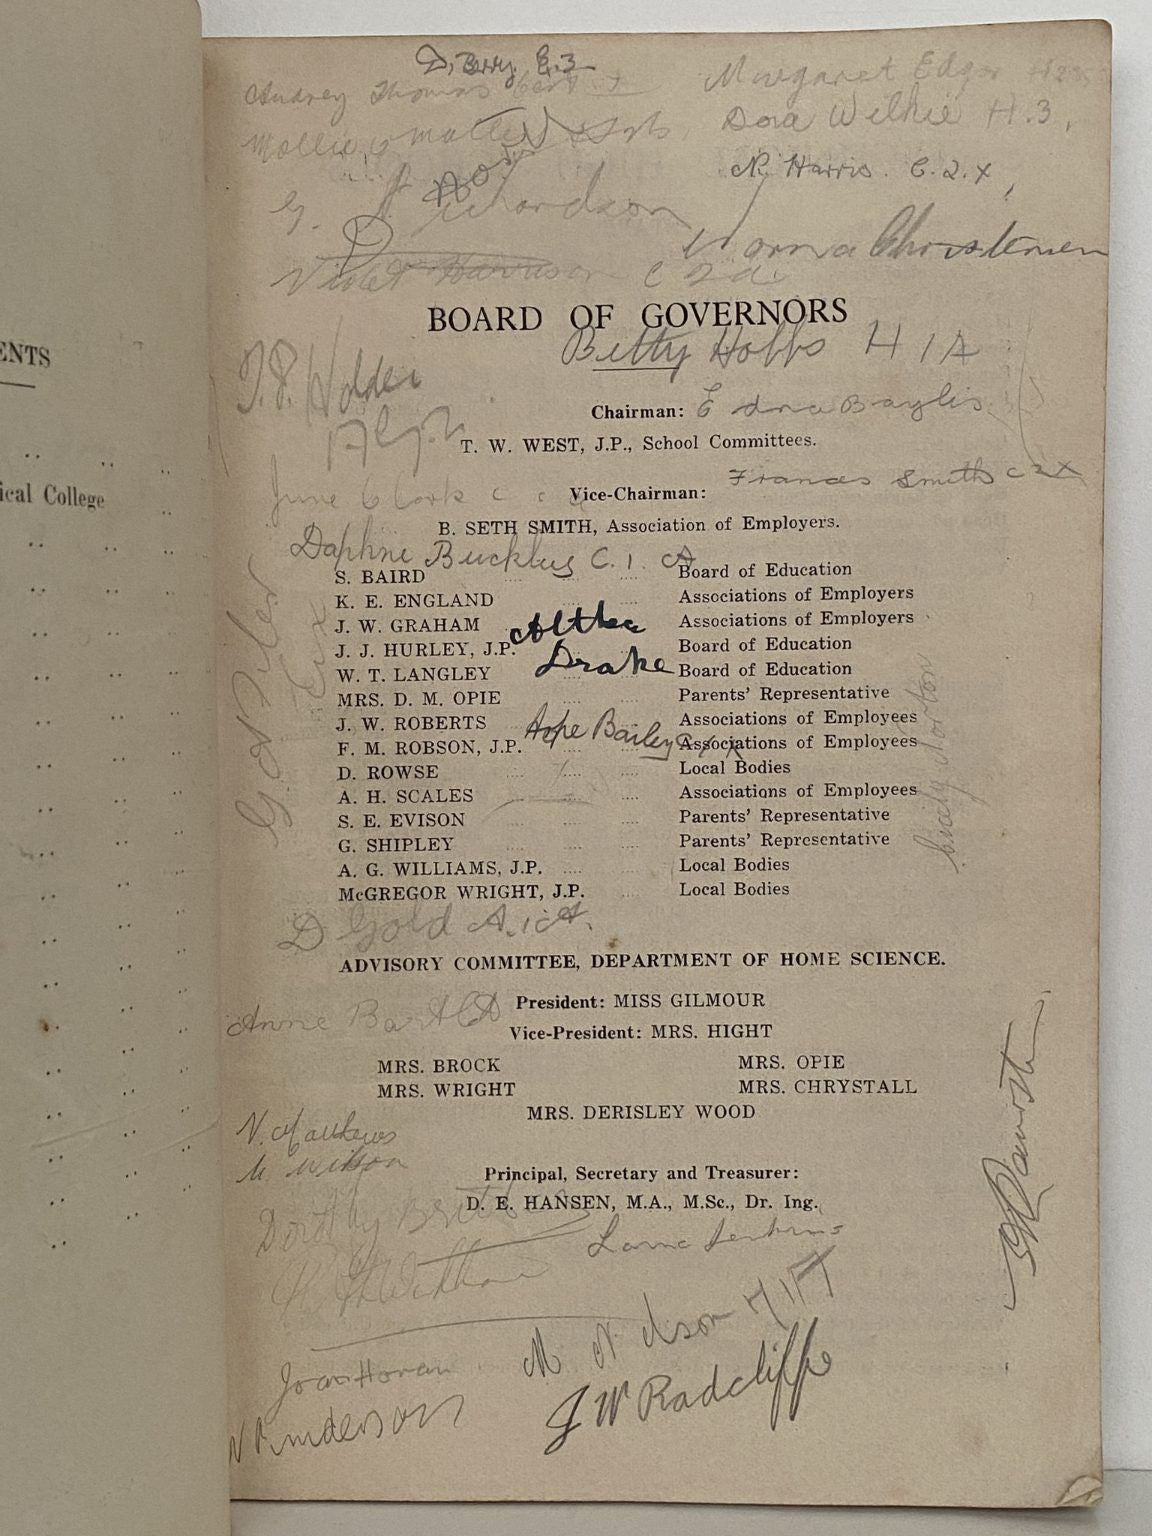 D. Berry E.3
Audrey Thomas
Margaret Edgar
Mollie
Dora Wilkie H.3,
N. Harris. C.2.X,
G. Richardson
Norma Christensen
Violet Harrison C 2 a
BOARD OF GOVERNORS
Betty Hobbs H 1 A
Holder
Chairman: Edna Baylis
T. W. WEST, J.P., School Committees.
Frances Smith C 2 X
June Clark
Vice-Chairman:
B. SETH SMITH, Association of Employers.
Daphne C. 1. A
S. BAIRD .... .... Board of Education
K. E. ENGLAND .... .... Associations of Employers
J. W. GRAHAM Associations of Employers
Drake
J. J. HURLEY, J.P. Board of Education
W. T. LANGLEY .... .... Board of Education
MRS. D. M. OPIE .... .... Parents' Representative
J. W. ROBERTS Associations of Employees
Hope Bailey
F. M. ROBSON, J.P. .... .... Associations of Employees
D. ROWSE .... .... .... Local Bodies
A. H. SCALES .... .... Associations of Employees
S. E. EVISON .... .... Parents' Representative
G. SHIPLEY .... .... .... Parents' Representative
A. G. WILLIAMS, J.P. .... .... Local Bodies
McGREGOR WRIGHT, J.P. .... Local Bodies
Norton
D Gold
ADVISORY COMMITTEE, DEPARTMENT OF HOME SCIENCE.
President: MISS GILMOUR
Annie Bartlett
Vice-President: MRS. HIGHT
MRS. BROCK MRS. OPIE
MRS. WRIGHT MRS. CHRYSTALL
MRS. DERISLEY WOOD
N. Matthews
M. Wilson
Principal, Secretary and Treasurer:
D. E. HANSEN, M.A., M.Sc., Dr. Ing.
Dorothy
Lorna Jenkins
Joan Horan
J W Radcliffe
ENTS
ical College